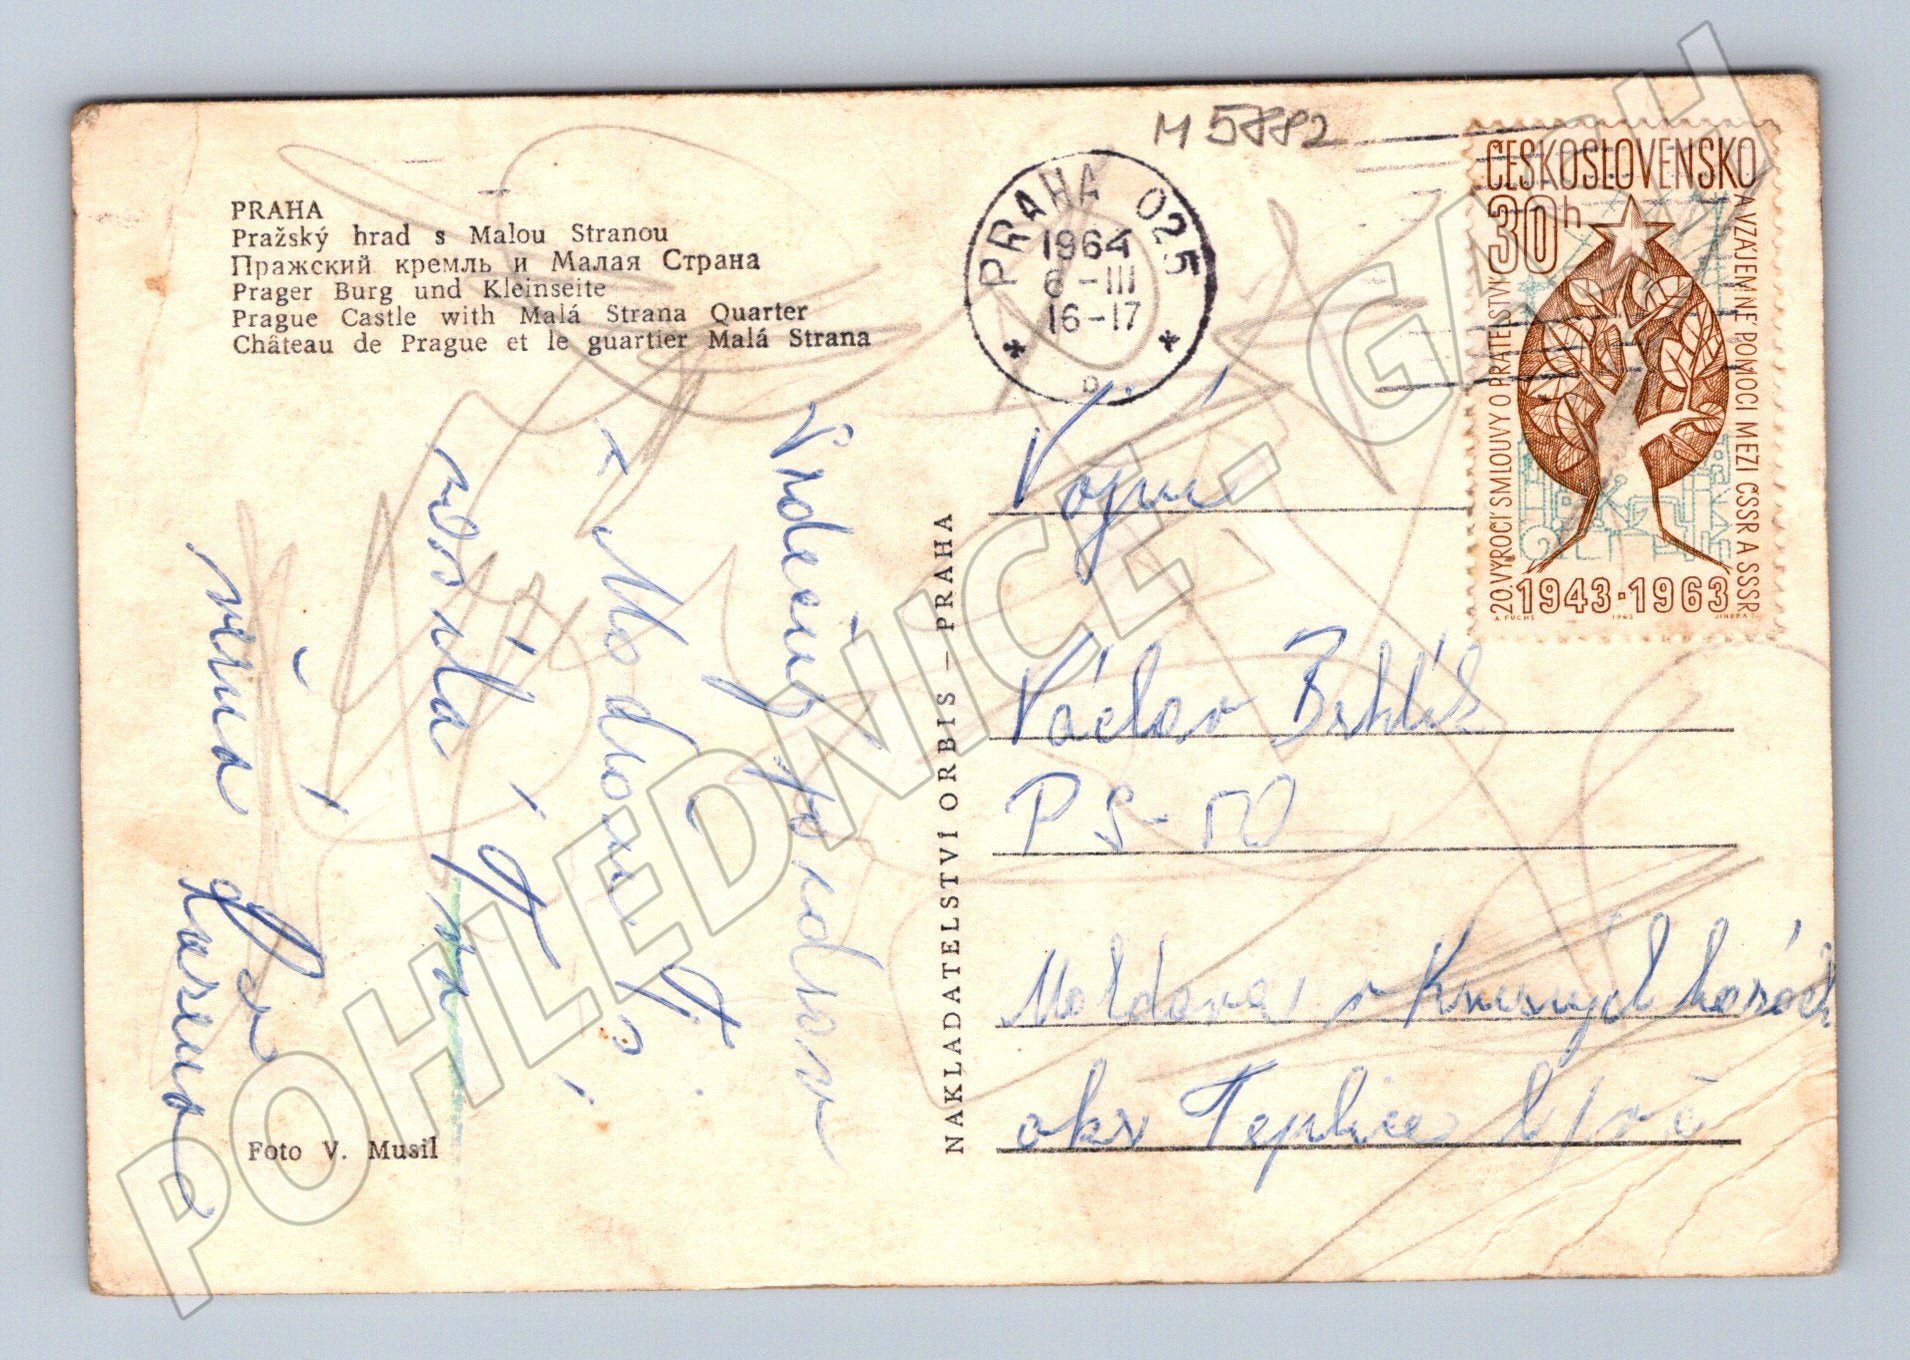 M 5882
PRAHA
Pražský hrad s Malou Stranou
Пражский кремль и Малая Страна
Prager Burg und Kleinseite
Prague Castle with Malá Strana Quarter
Château de Prague et le guartier Malá Strana
PRAHA 025
1964
6-III
16-17
ČESKOSLOVENSKO
30h
20. VÝROČÍ SMLOUVY O PŘÁTELSTVÍ
A VZÁJEMNÉ POMOCI MEZI ČSSR A SSSR
1943·1963
A. FUCHS 1963 JINDRA
Srdečný pozdrav
z Modřan Ti
posílá Tvá
věrná
NAKLADATELSTVÍ ORBIS – PRAHA
Vojín
Václav Brhlík
PS-10
Moldava v Krušných horách
okr Teplice
Foto V. Musil
POHLEDNICE-GACH